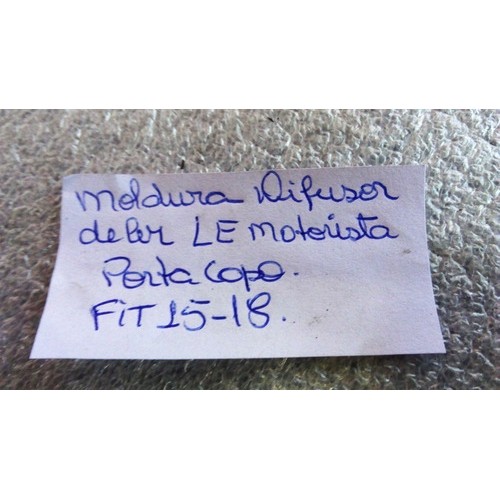 Moldura Difusor
de Ar LE Motorista
Porta Copo.
FiT 15-18.